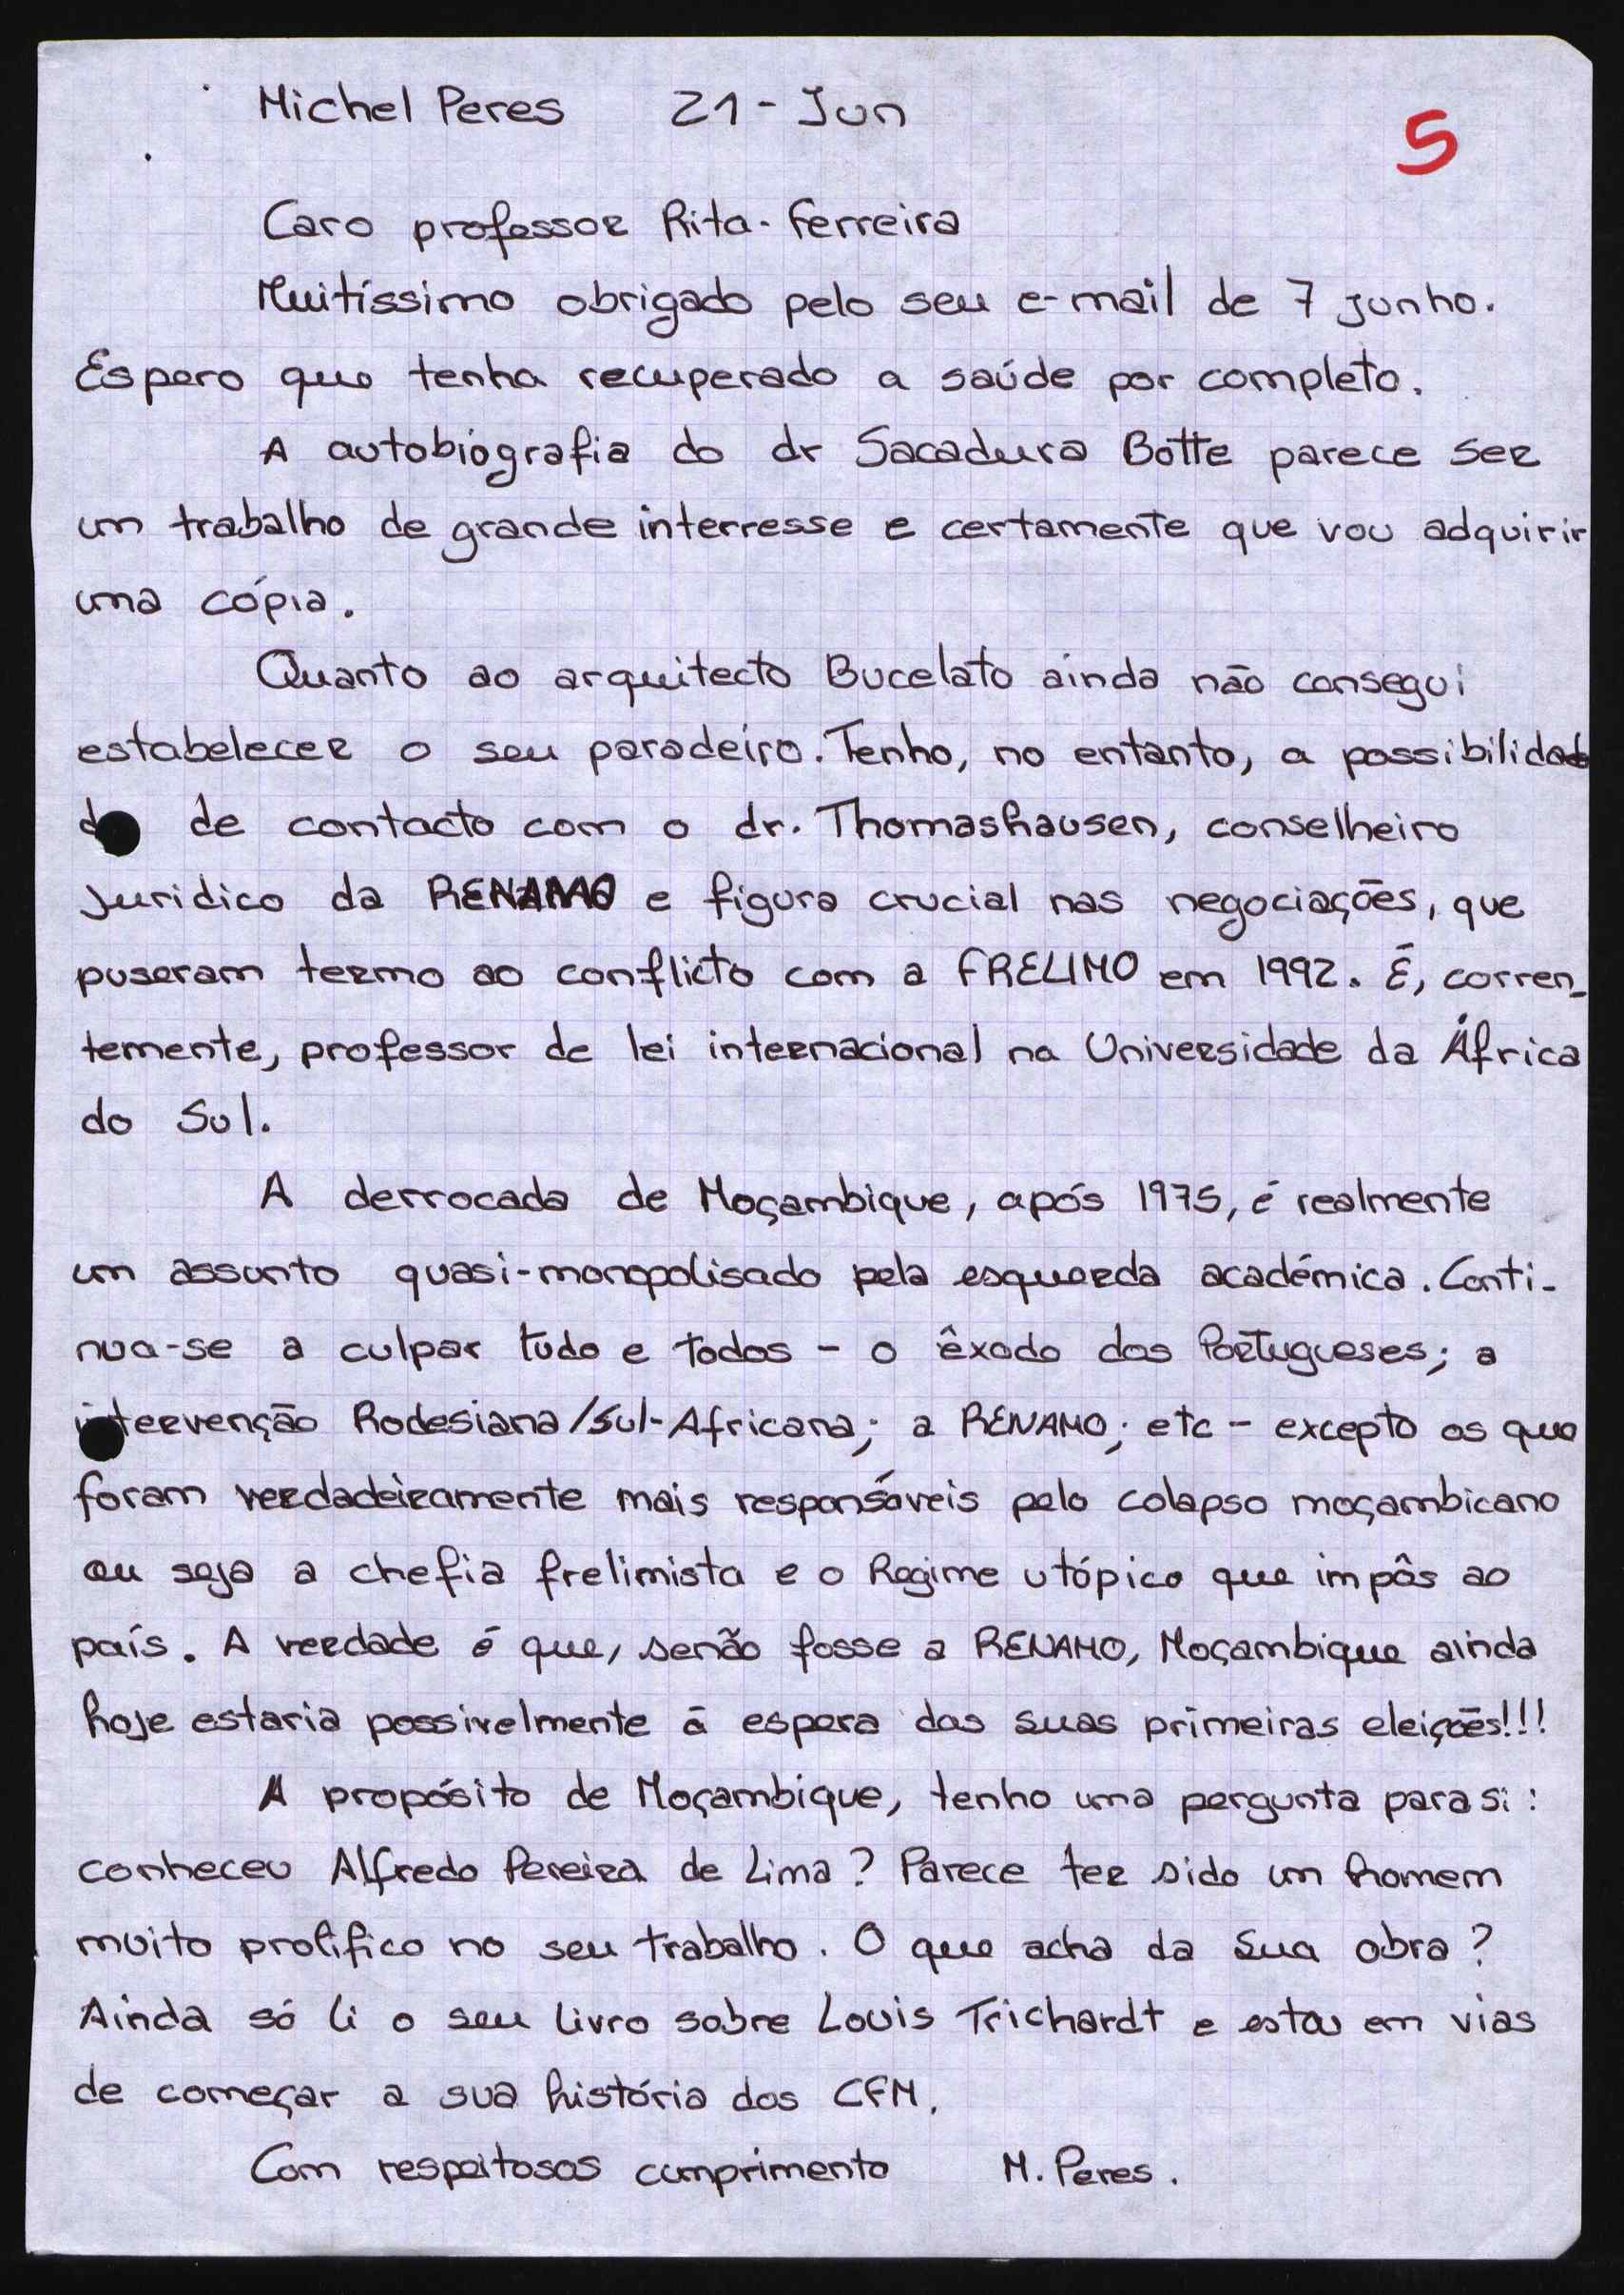 Michel Peres 21-Jun
5
Caro professor Rita-Ferreira
Muitíssimo obrigado pelo seu e-mail de 7 junho.
Espero que tenha recuperado a saúde por completo.
A autobiografia do dr Sacadura Botte parece ser
um trabalho de grande interresse e certamente que vou adquirir
uma cópia.
Quanto ao arquitecto Bucelato ainda não consegui
estabelecer o seu paradeiro. Tenho, no entanto, a possibilida
de contacto com o dr. Thomashausen, conselheiro
Juridico da RENAMO e figura crucial nas negociações, que
puseram termo ao conflicto com a FRELIMO em 1992. É, corren-
temente, professor de lei internacional na Universidade da África
do Sul.
A derrocada de Moçambique, após 1975, é realmente
um assunto quasi-monopolisado pela esquerda académica. Conti-
nua-se a culpar tudo e todos - o êxodo dos Portugueses; a
intervenção Rodesiana/Sul-Africana; a RENAMO; etc - excepto os que
foram verdadeiramente mais responsáveis pelo colapso moçambicano
ou seja a chefia frelimista e o Regime utópico que impôs ao
país. A verdade é que, senão fosse a RENAMO, Moçambique ainda
hoje estaria possivelmente á espera das suas primeiras eleições!!!
A propósito de Moçambique, tenho uma pergunta para si:
conheceu Alfredo Pereira de Lima? Parece ter sido um homem
muito prolifico no seu trabalho. O que acha da sua obra?
Ainda só li o seu livro sobre Louis Trichardt e estou em vias
de começar a sua história dos CFM.
Com respeitosos cumprimento M. Peres.